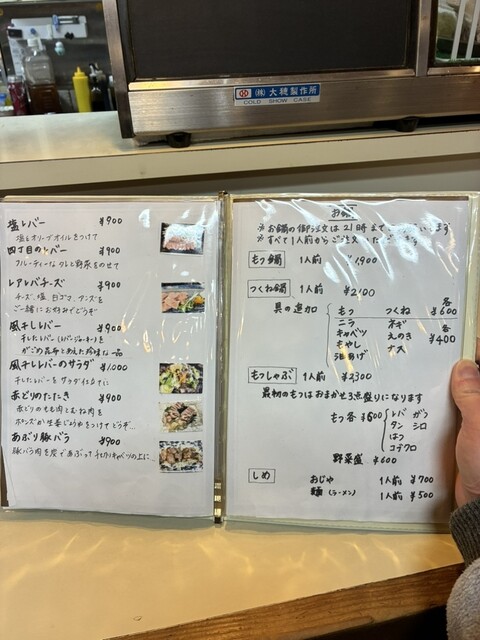 (株)大穂製作所
COLD SHOW CASE
塩レバー ¥900
塩とオリーブオイルをつけて
四丁目のレバー ¥900
フルーティーなタレと野菜をのせて
レアレバチーズ ¥900
チーズ、塩、白ゴマ、タンズを
ご一緒にお好みでどうぞ
風干しレバー ¥900
干したレバー(レバージャーキー)を
がごめ昆布とあえた珍味な一品
風干しレバーのサラダ ¥1,000
干したレバーをサラダ仕立てに
赤どりのたたき ¥900
赤どりのもも肉とむね肉を
ポン酢か生姜じょうゆをつけてどうぞ…
あぶり豚バラ ¥900
豚バラ肉を炭であぶって千切りキャベツの上に…
お鍋
※お鍋の御注文は21時まで
※すべて1人前からご注文
もつ鍋 1人前 ¥1,900
つくね鍋 1人前
¥2,100
具の追加
もつ つくね 各¥600
ニラ ネギ 各
キャベツ えのき ¥400
もやし 水菜
油あげ
もつしゃぶ 1人前 ¥2,300
最初のもつはおまかせ3点盛りになります
もつ各¥600 レバ ガツ
タン シロ
はつ
コブクロ
野菜盛 ¥600
しめ
おじや 1人前 ¥700
麺(ラーメン) 1人前 ¥500